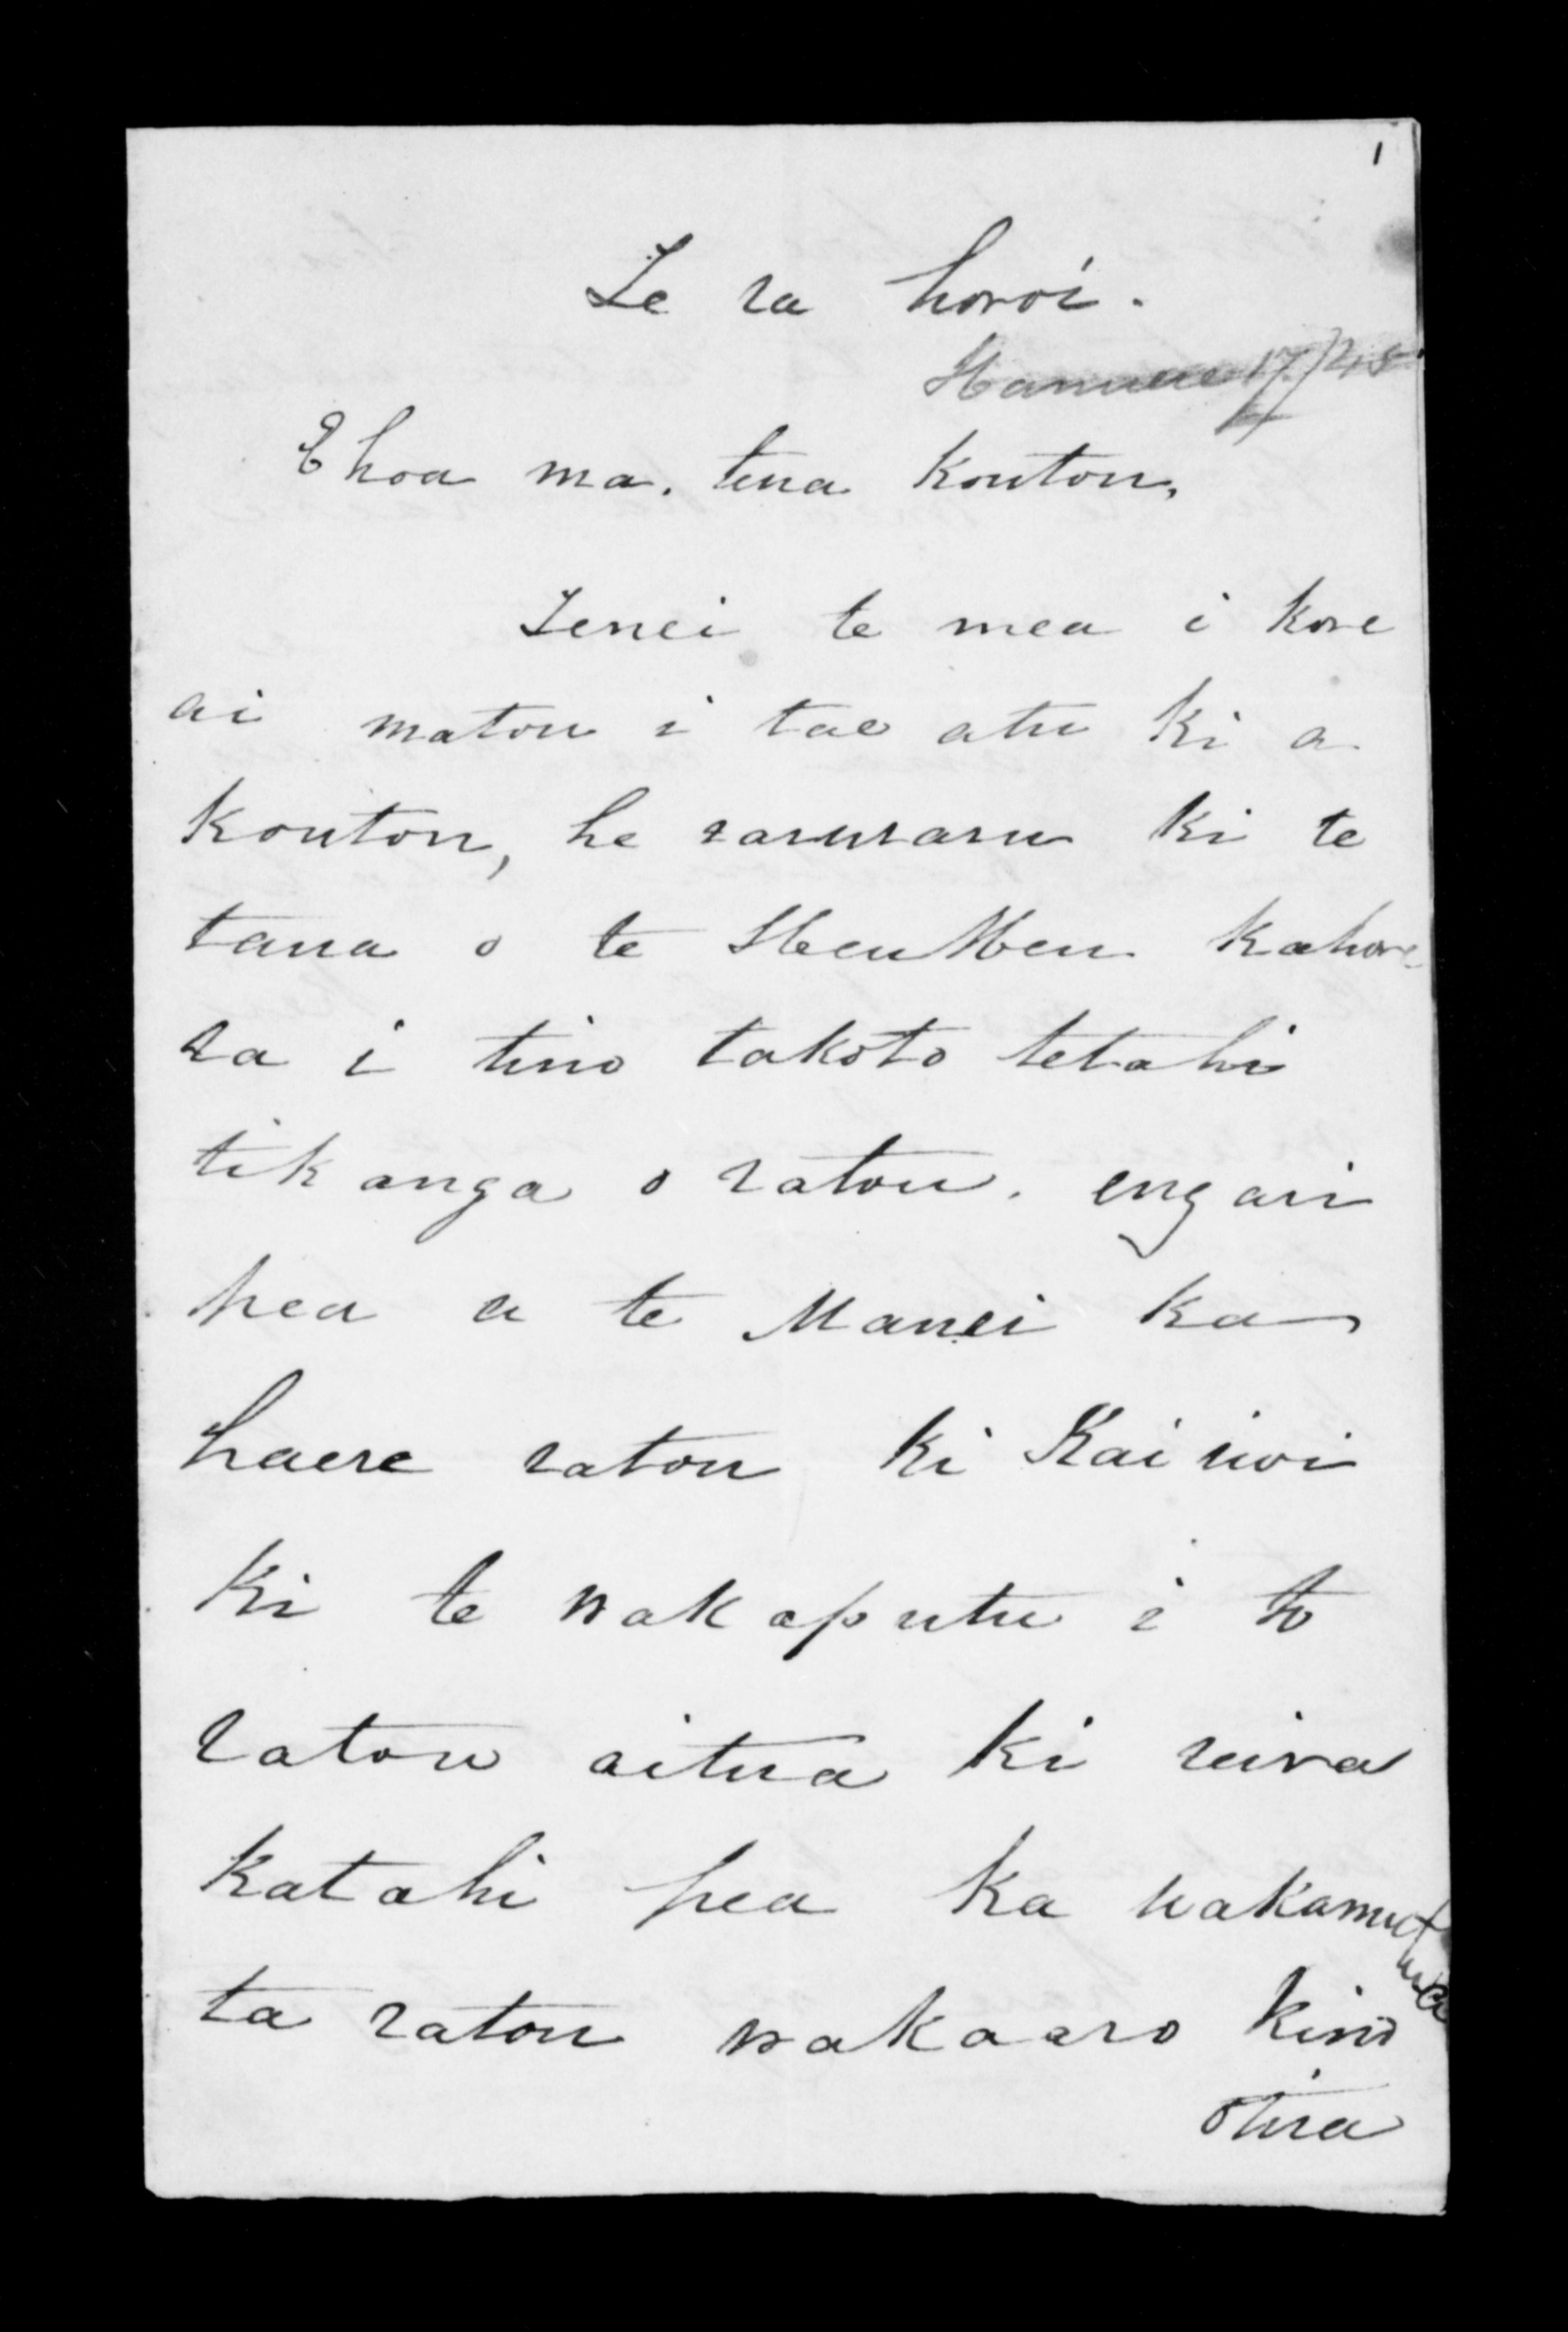 1
Te ra horoi.
Hanuere 17/45
E hoa ma. tena koutou,
Tenei te mea i kore
ai matou i tae atu ki a
koutou, he raruraru ki te
taua o te HeuHeu kahore
ra i tino takoto tetahi
tikanga o ratou. engari
pea a te Manei ka
haere ratou ki Kai iwi
ki te wakaputu i to
ratou aitua ki reira
katahi pea ka wakamutua
ta ratou wakaaro kino
otira